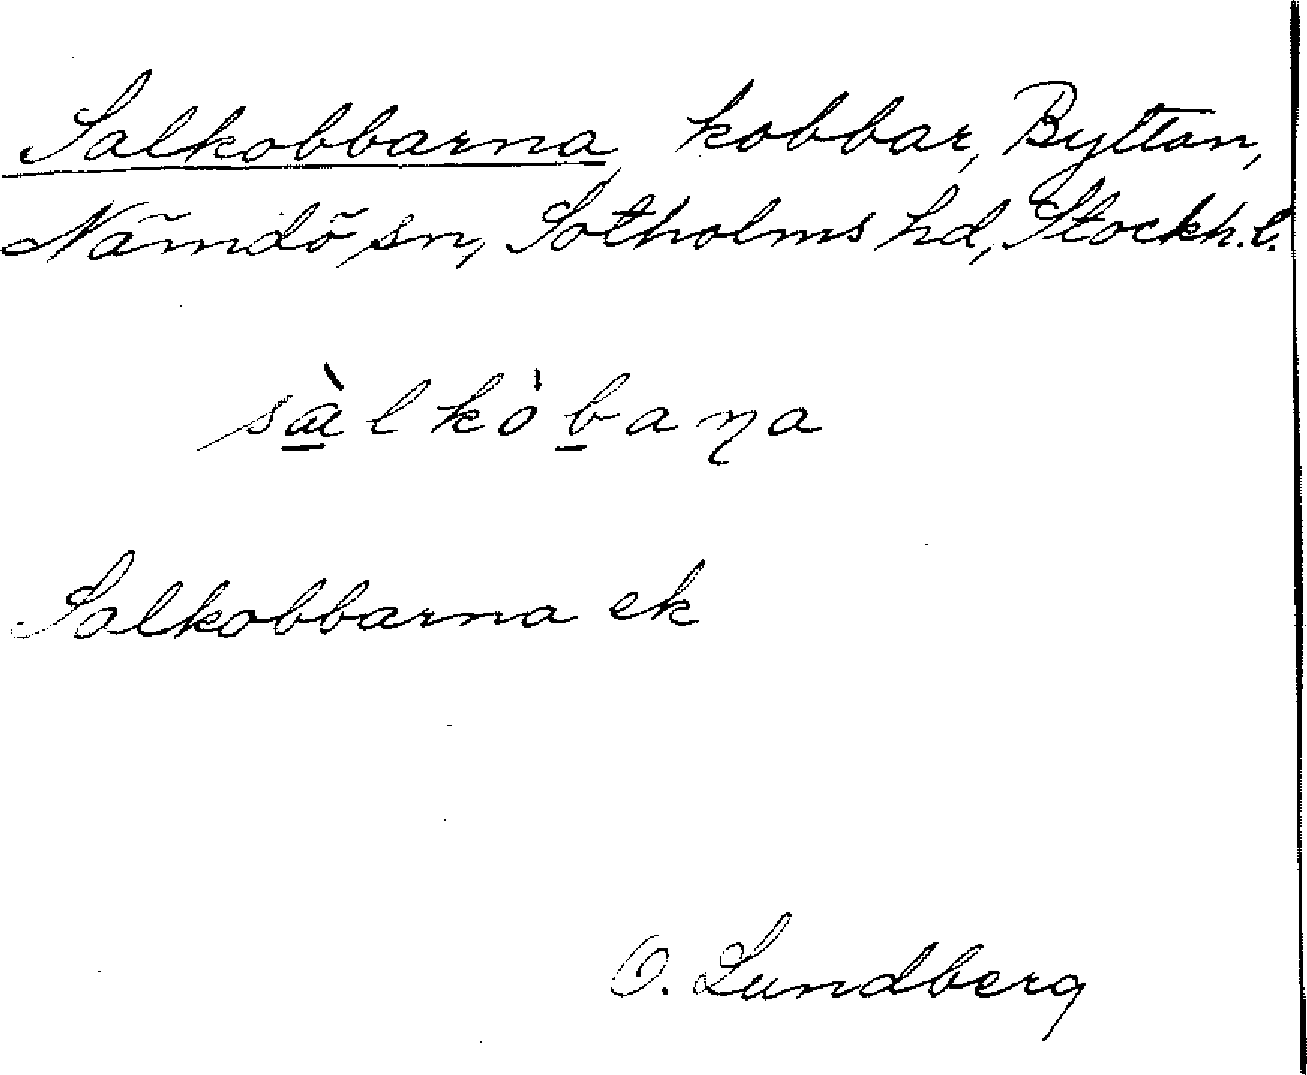 Salkobbarna, kobbar, Byttan,
Nämdö sn, Sotholms hd, Stockh. l.
sàlkòbaɳa
Salkobbarna ek
O. Lundberg